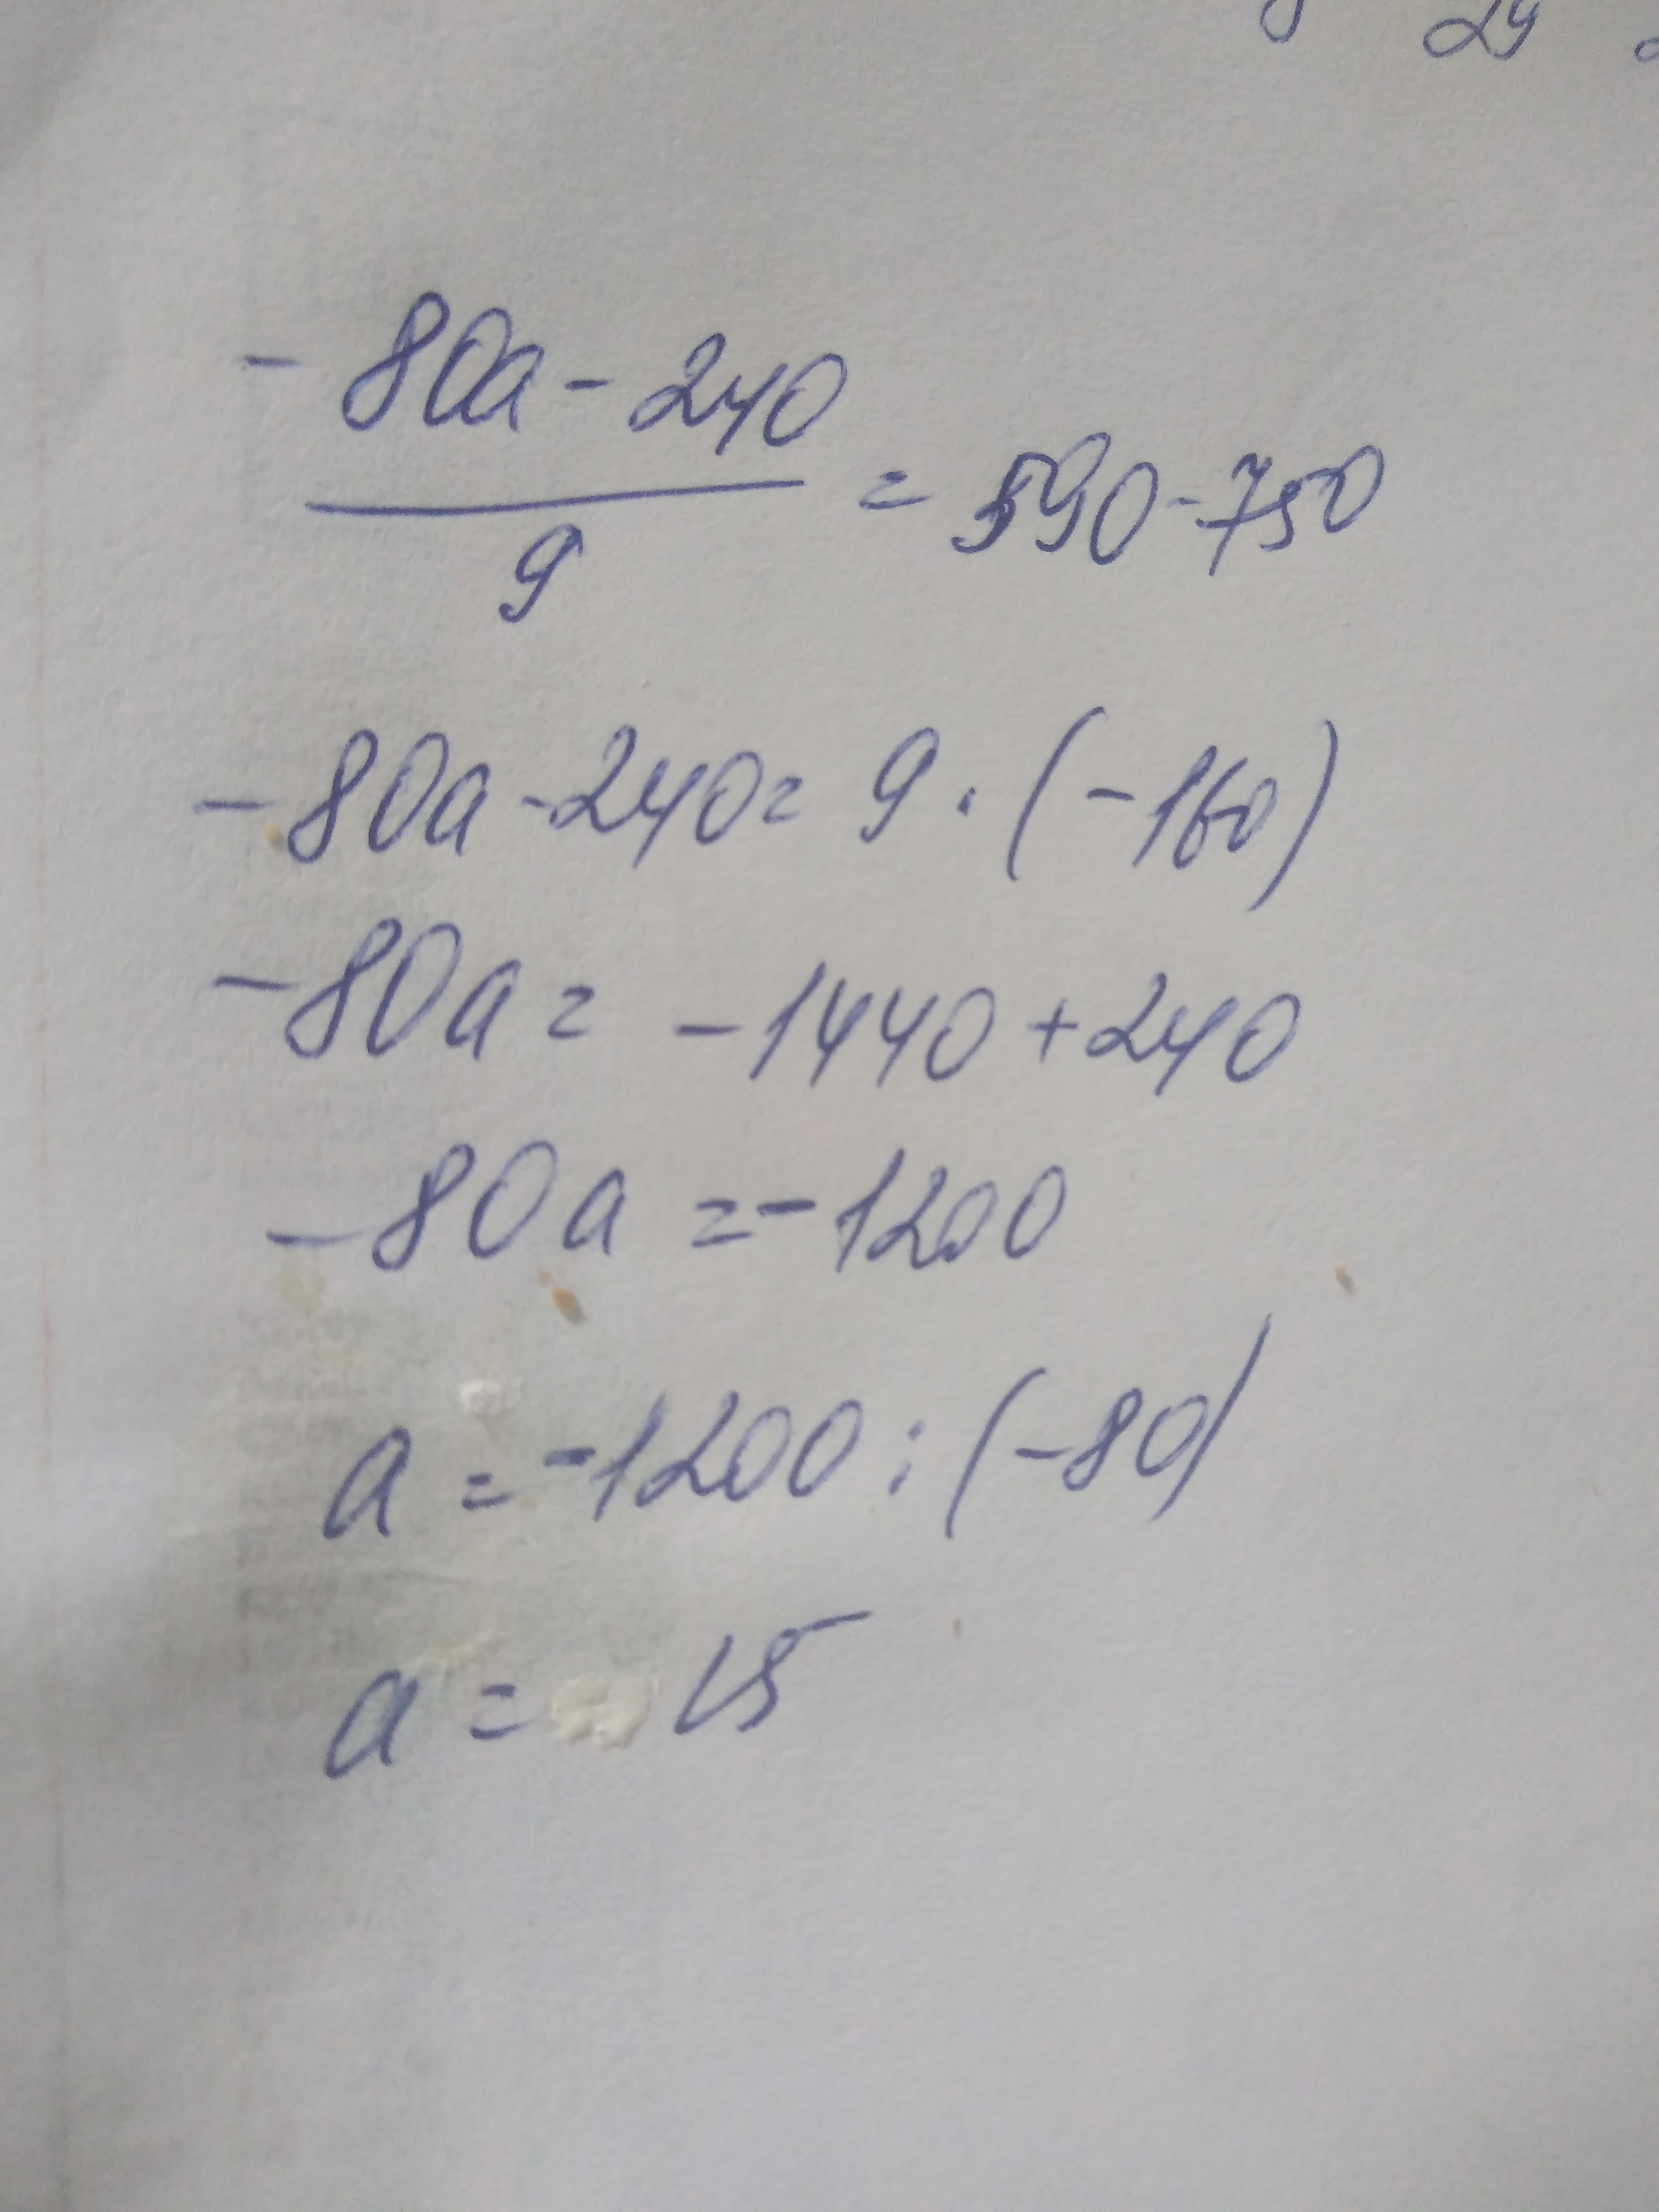 24
- 80a - 240
= 590 - 750
9
- 80a - 240 = 9 · (-160)
- 80a = - 1440 + 240
- 80a = - 1200
a = - 1200 : (-80)
a = 15